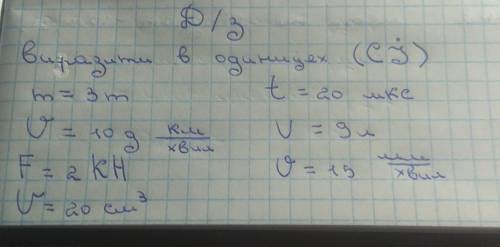 Д/З
Виразити в одиницях (СІ)
m = 3т t = 20 мкс
υ = 10 км/хвил V = 9л
F = 2 КН υ = 15 мм/хвил
V = 20 см³